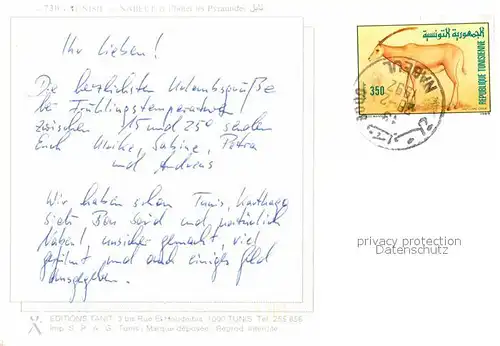 TUNISIE — NABEUL
Ihr Lieben!
Die herzlichsten Urlaubsgrüße
bei Frühlingstemperaturen
zwischen 15 und 25° senden
Euch Ulrike, Sabine, Petra
und Andreas
Wir haben schon Tunis, Karthago
Sidi Bou Said und natürlich
Nabeul unsicher gemacht, viel
gefilmt und auch einiges Geld
ausgegeben.
EDITIONS TANIT: 3 bis Rue 1000 TUNIS Tél. 255 656
Imp. Tunis; Marque déposée. Reprod. interdite
الجمهورية التونسية
350
REPUBLIQUE TUNISIENNE
NABEUL
1992
privacy protection
Datenschutz